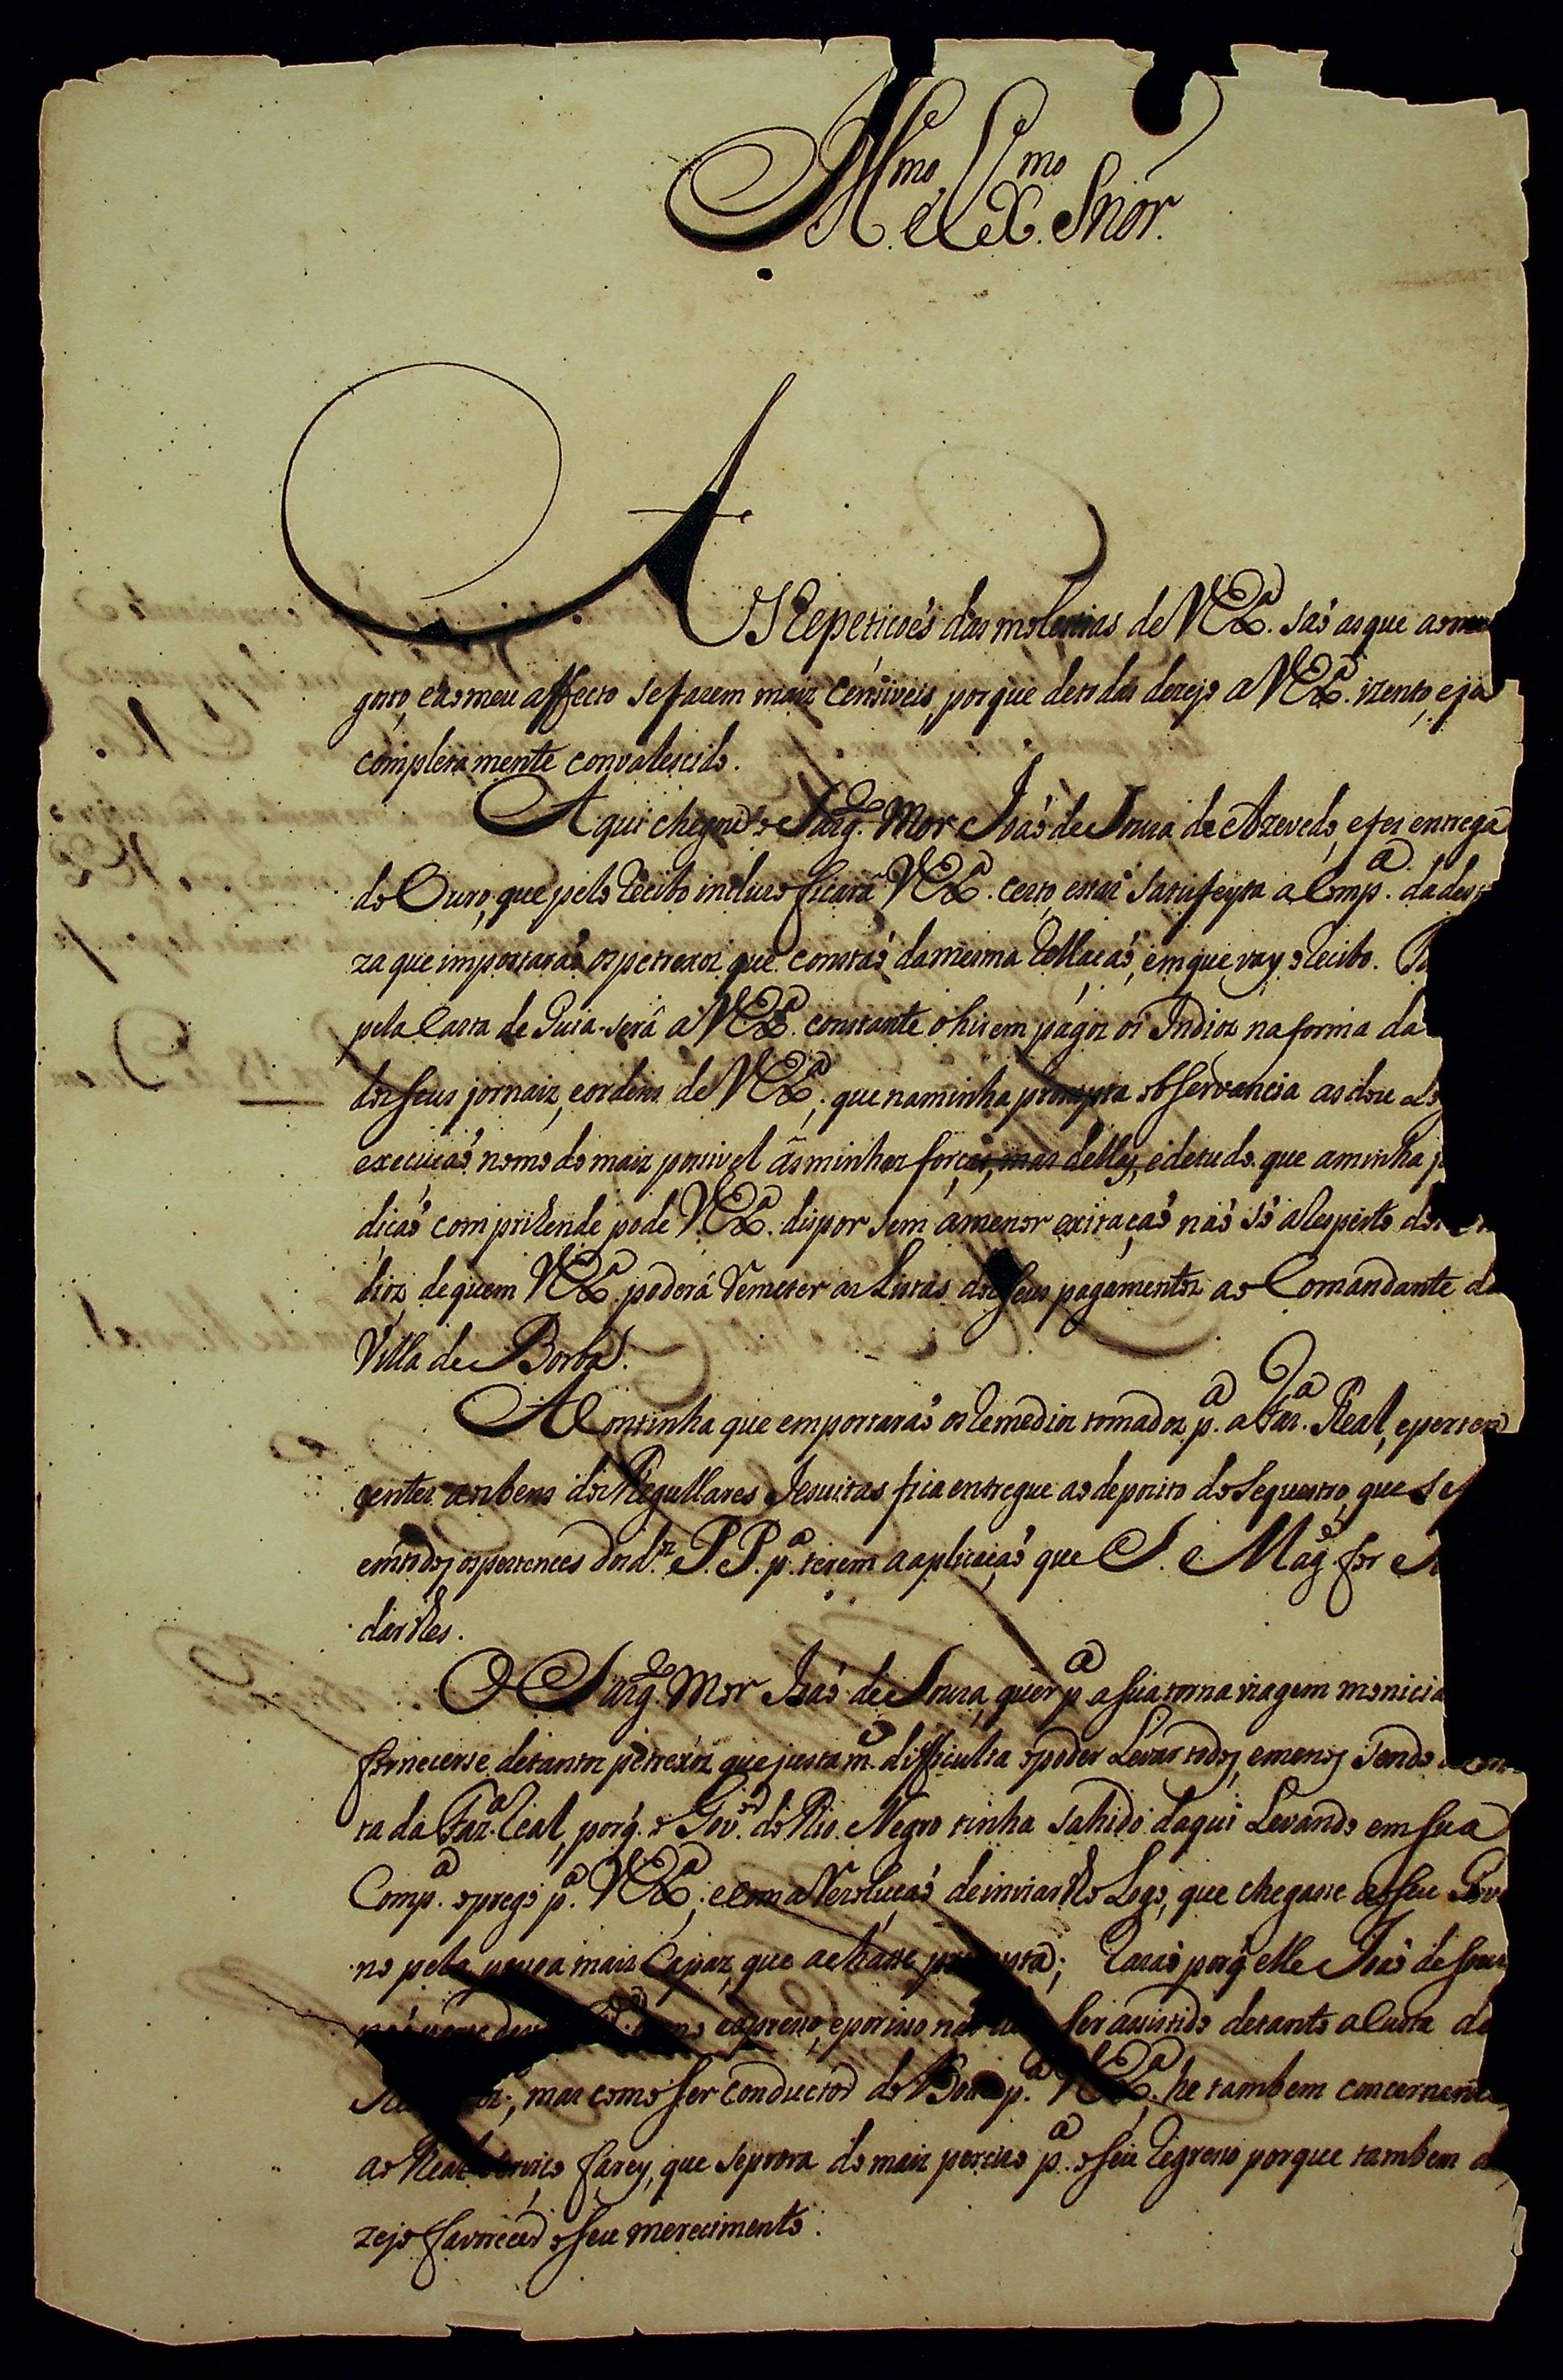 Ill.mo e Ex.mo Snor.
AS Repetiçoẽs das molestias de V Ex.a saõ as que ao meu
gosto, e ao meu affecto se fazem maiz cénsiveis, porque de todas dezejo a V Ex.a izento, e ja
completamente convalescido.
Aqui chegou o Sarg.to Mor Joaõ de Souza de Azevedo, e fez entrega
do Ouro, que pelo recibo incluzo ficará V Ex.a certo, estar satisfeyta a Comp.a da
za que importaraõ os petrexoz que constaõ da mesma Rellaçaõ, em que vay o recibo.
pela Carta de Guia será a V Ex.a constante o hirem págoz os Indioz na forma da
dos seus jornaiz, e ordens de V Ex.a; que na minha prompta observancia as dou
execuçaõ, no modo maiz possivel ás minhas forças, mas dellas, e de tudo que a minha
diçaõ comprihende pode V Ex.a dispor sem a menor exitaçaõ naõ só a Respeito dos
dioz, de quem V Ex.a poderá remeter as Listas dos seus pagamentoz ao Comandante da
Villa de Borba.
A Continha que emportaraõ os remedioz tomadoz p.a a Faz.a Real, e perten
centes aos bens dos Regullares Jesuitas fica entregue ao deposito do Sequestro, que se
em todos os pertences dos d.os P.P. p.a terem a aplicaçaõ que S. Mag.e for
darlhes.
O Sarg.to Mor Joaõ de Souza, quer p.a a sua torna viagem moniciar
fornecerse de tantoz petrexoz que justam.te difficulta o poder Levar todos, e menos sendo
ta da Faz.a Real, porq. o Gov.or do Rio Negro tinha sahido daqui Levando em sua
Comp.a o prego p.a V Ex.a, e com a Rezoluçaõ de inviar lho Logo, que chegasse ao seu Gov
no pela pessoa mais Capaz, que achasse prompta; Razaõ porq elle Joaõ de Souza
expresso, e por isso naõ ser asistido de tanto a Custa da
mas como ser conductor do p.a V Ex.a he tambem concernente
ao Real serviço farey, que se prova do maiz percizo p.a o seu regresso porque tambem
zejo favorecer o seu merecimento.